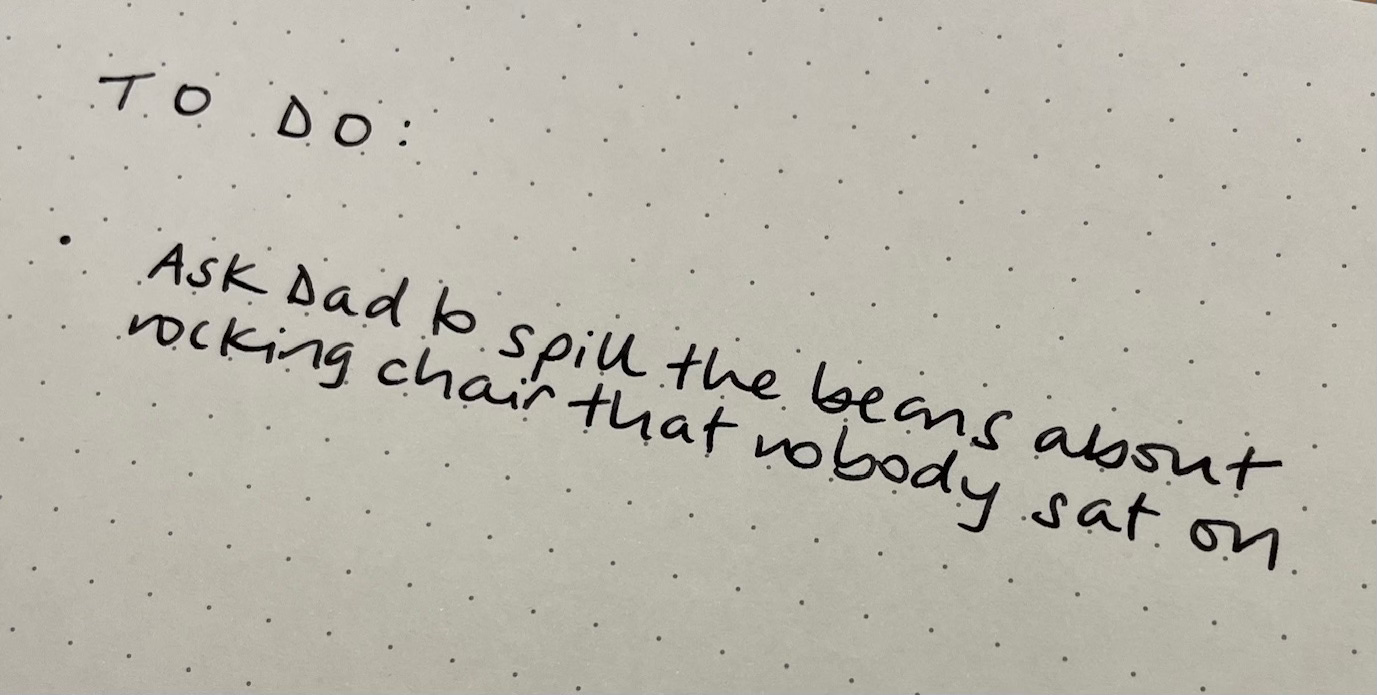 TO DO:
• Ask Dad to spill the beans about
rocking chair that nobody sat on